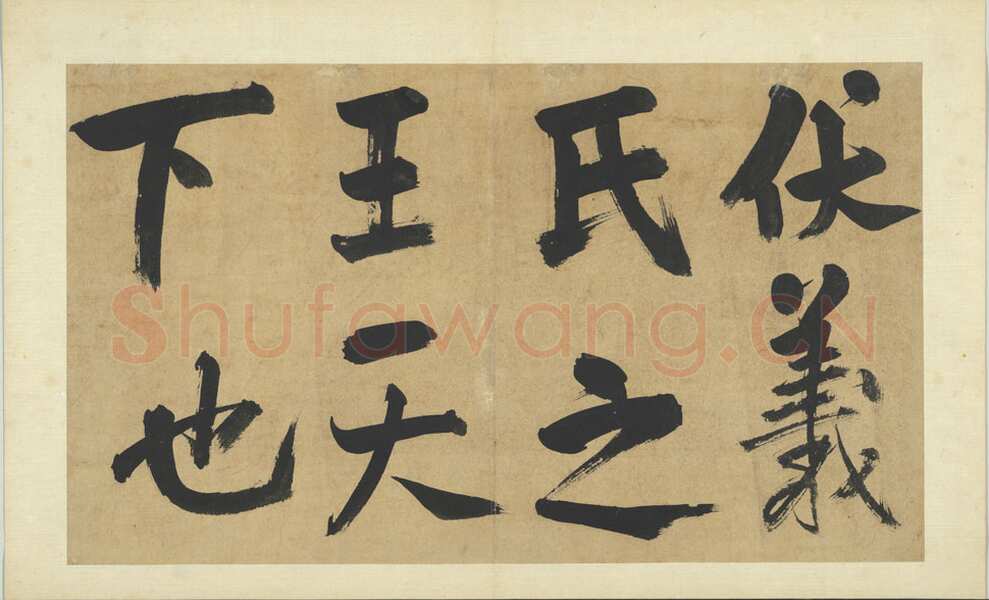 伏羲
氏之
王天
下也
Shufawang.CN